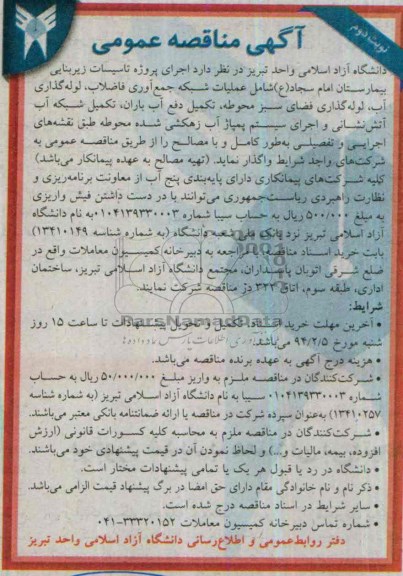 نوبت دوم
آگهی مناقصه عمومی
دانشگاه آزاد اسلامی واحد تبریز در نظر دارد اجرای پروژه تاسیسات زیربنایی
بیمارستان امام سجاد(ع)شامل عملیات شبکه جمع‌آوری فاضلاب، لوله‌گذاری
آب، لوله‌گذاری فضای سبز محوطه، تکمیل دفع آب باران، تکمیل شبکه آب
آتش‌نشانی و اجرای سیستم پمپاژ آب زهکشی شده محوطه طبق نقشه‌های
اجرایی و تفصیلی به‌طور کامل و با مصالح را از طریق مناقصه عمومی به
شرکت‌های واجد شرایط واگذار نماید. (تهیه مصالح به عهده پیمانکار می‌باشد)
کلیه شرکت‌های پیمانکاری دارای پایه‌بندی پنج آب از معاونت برنامه‌ریزی و
نظارت راهبردی ریاست‌جمهوری می‌توانند با در دست داشتن فیش واریزی
به مبلغ ۵۰۰/۰۰۰ ریال به حساب سیبا شماره ۰۱۰۴۱۳۹۳۳۰۰۰۳ به نام دانشگاه
آزاد اسلامی تبریز نزد بانک ملی شعبه دانشگاه (به شماره شناسه ۱۳۴۱۰۱۴۹)
بابت خرید اسناد مناقصه با مراجعه به دبیرخانه کمیسیون معاملات واقع در
ضلع شرقی اتوبان پاسداران، مجتمع دانشگاه آزاد اسلامی تبریز، ساختمان
اداری، طبقه سوم، اتاق ۳۲۳ در مناقصه شرکت نمایند.
شرایط:
• آخرین مهلت خرید اسناد، تکمیل و تحویل پیشنهادات تا ساعت ۱۵ روز
شنبه مورخ ۹۴/۲/۵ می‌باشد.
ParsNamadData
• هزینه درج آگهی به عهده برنده مناقصه می‌باشد.
• شرکت‌کنندگان در مناقصه ملزم به واریز مبلغ ۵۰/۰۰۰/۰۰۰ ریال به حساب
شماره ۰۱۰۴۱۳۹۳۳۰۰۰۳ سیبا به نام دانشگاه آزاد اسلامی تبریز (به شماره شناسه
۱۳۴۱۰۲۵۷) به‌عنوان سپرده شرکت در مناقصه یا ارائه ضمانتنامه بانکی معتبر می‌باشند.
• شرکت‌کنندگان در مناقصه ملزم به محاسبه کلیه کسورات قانونی (ارزش
افزوده، بیمه، مالیات و...) و لحاظ نمودن آن در قیمت پیشنهادی خود می‌باشند.
• دانشگاه در رد یا قبول هر یک یا تمامی پیشنهادات مختار است.
• ذکر نام و نام خانوادگی مقام دارای حق امضا در برگ پیشنهاد قیمت الزامی می‌باشد.
• سایر شرایط در اسناد مناقصه درج شده است.
• شماره تماس دبیرخانه کمیسیون معاملات ۳۳۳۲۰۱۵۲-۰۴۱
دفتر روابط‌عمومی و اطلاع‌رسانی دانشگاه آزاد اسلامی واحد تبریز